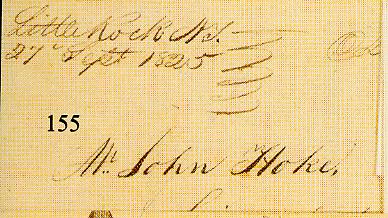 Little Rock A.T.
27 Sept 1825
155
Mr. John Hoke.